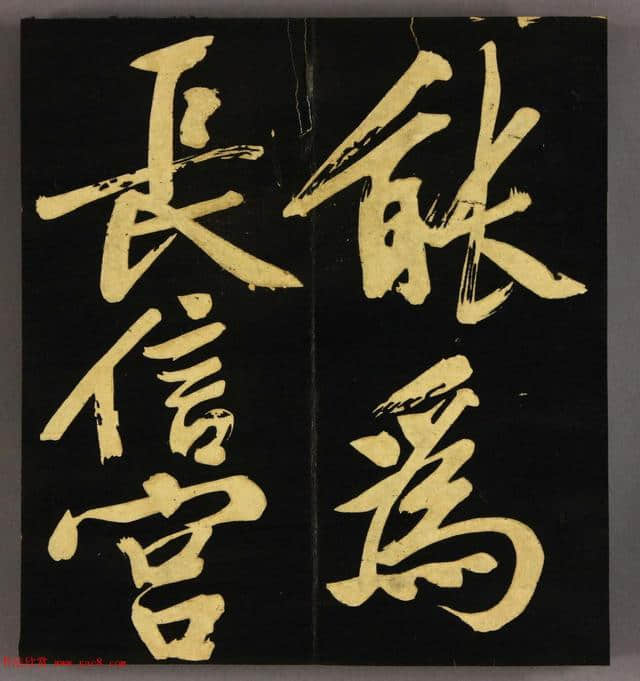 能為
長信宮
书法欣赏 www.yac8.com